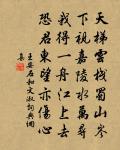 天梯雲棧蜀山岑
下視嘉陵水萬尋
我得一舟江上去
恐君東望亦傷心
王安石和文淑詞典網
集